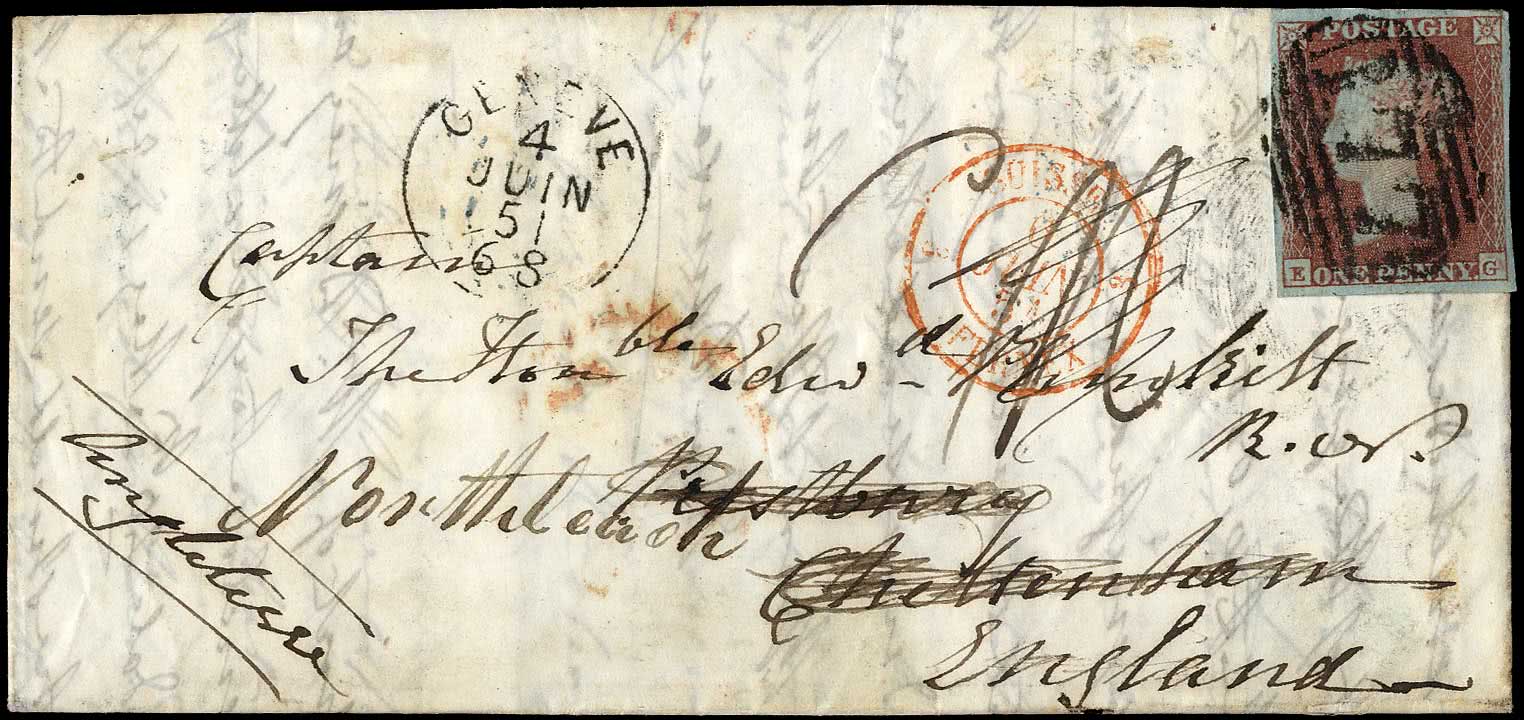 POSTAGE
E ONE PENNY G
GENEVE
4
JUIN
51
68
SUISSE
JUIN
Captain
The Honble Edwd Plunkett
R. N.
Northleach
Cheltenham
England
Angleterre